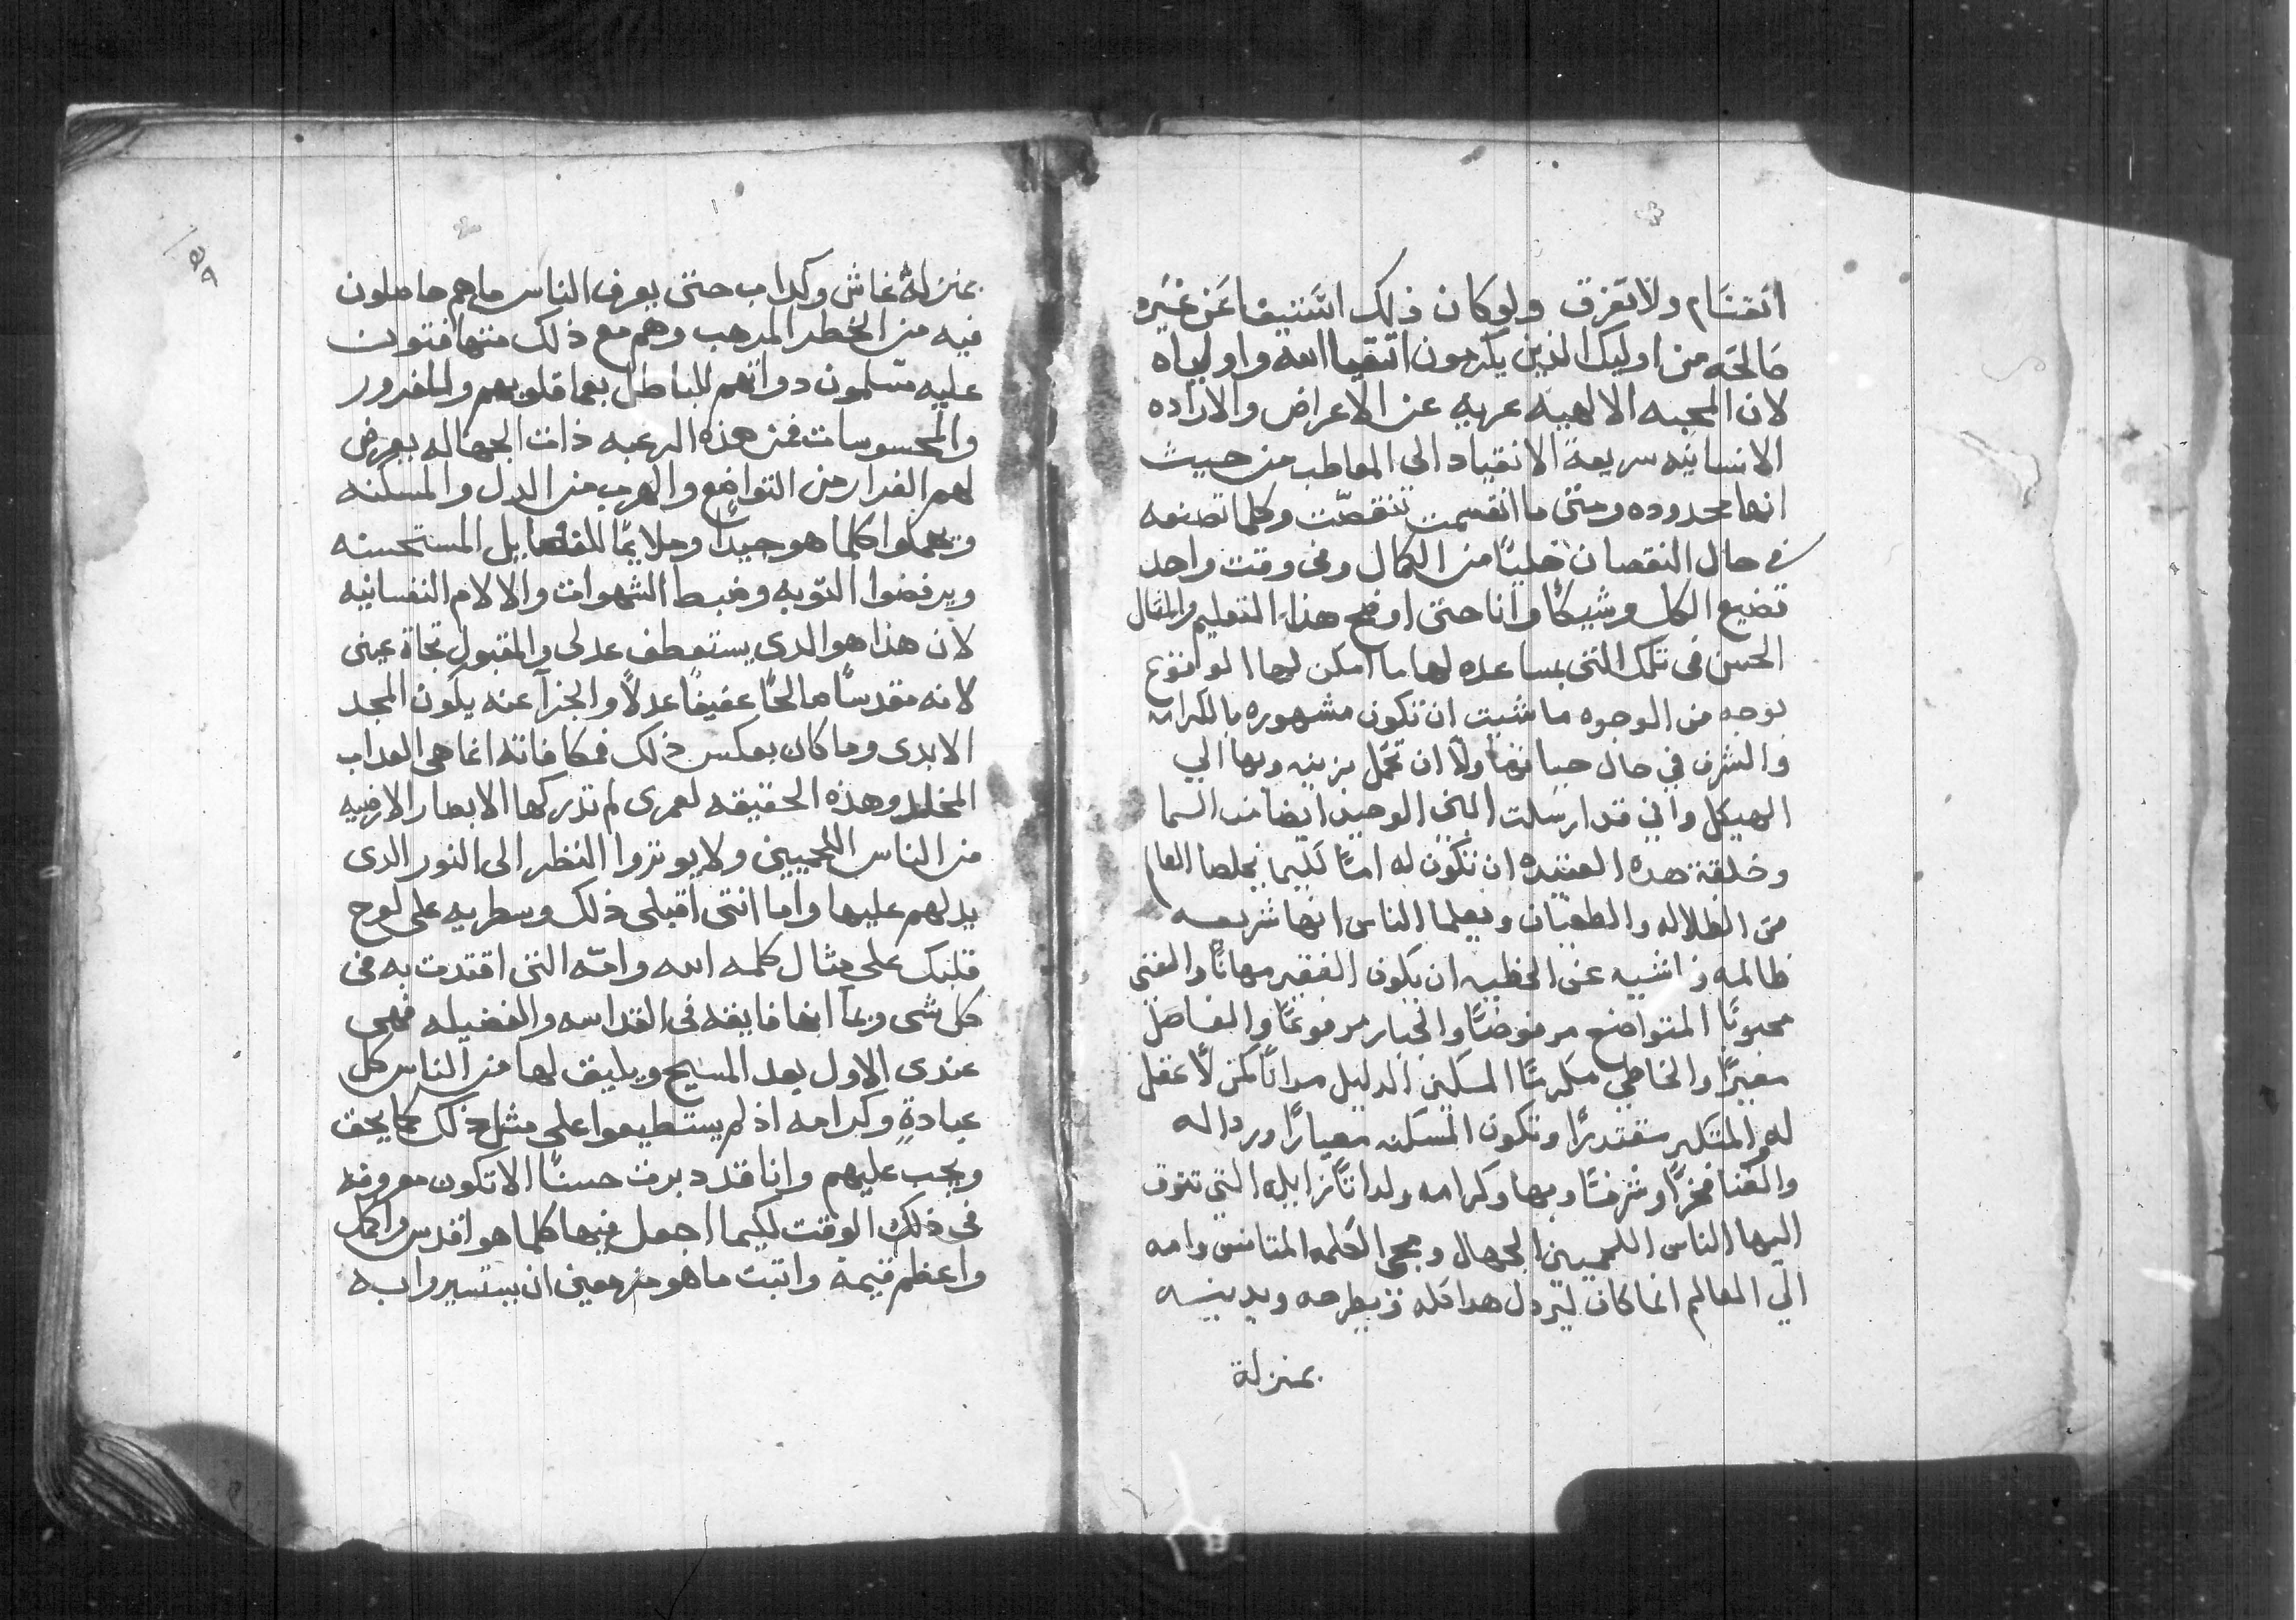 انقسام ولا تفرق ولو كان ذلك عن غيره
من اوليك الذين يكرمون اتقيا الله واولياه
لان المحبه الالهيه عريه عن الاعراض والاراده
الانسانيه سريعة الانقياد الي المعاطب من حيث
انها محدوده ومتى ما انقسمت تنقصت وكلما تصنعه
في حال النقصان خليًا من الكمال وفى وقت واحد
تضيع الكل وشيكًا وانا حتى اوضح هذا التعليم والمثال
الحسن فى تلك التى بمساعده لها ما امكن لها
بوجه من الوجوه ما شيت ان تكون مشهوره بالكرامه
والشرف في حال حياتها ولا ان تحمل بزينه وبها الي
الهيكل واني قد ارسلت ابني الوحيد ايضا من السما
وخلقة هده العتيده ان تكون له امًا لكيما يخلصا العالم
من الظلاله والطغيان ويعلما الناس انها شريعه
ظالمه ناشيه عن الخطيه ان يكون الفقير مهانًا والغنى
محبوبًا المتواضع مرفوضًا والجبار مرفوعًا والفاضل
معيرًا والخاطي مكرمًا المسكين الدليل مدانًا كمن لا عقل
له والمتكبر مقتدرًا وتكون المسكنه معيارًا ورداله
والغنا فخرًا وشرفًا وبها وكرامه ولداتًا زايله التي تتوق
اليها الناس اللحميين الجهال ومجى الكلمه المتانس وامه
الي العالم انما كان ليردل هدا كله ويطرحه ويدينه
بمنزلة
بمنزلة غاش وكداب حتى يعرف الناس ما هم حاصلون
فيه من الخطر المرهب وهم مع ذلك متهافتون
عليه مسلمون دواتهم للباطل بعما قلوبهم وللغرور
والمحسوسات فمن هذه الرغبه ذات الجهاله يعرض
لهم الفرار من التواضع والهرب من الدل والمسكنه
ويهملوا كلما هو جيدًا وملايمًا للفضايل المستحسنه
ويرفضوا التوبه وضبط الشهوات والالام النفسانيه
لان هذا هو الدى يستعطف عدلى والمقبول تجاة عينى
لانه مقدسًا صالحًا عفيفًا عدلًا والجزآ عنه يكون المجد
الابدى وما كان بعكس ذلك فمكافاته انما هى العداب
المخلد وهذه الحقيقه لعمرى لم تدركها الابصار الارضيه
من الناس اللحميين ولا يوثروا النظر الى النور الدى
يدلهم عليها واما انتى اقبلى ذلك وسطريه على لوح
قلبك على مثال كلمه الله وامّه التى اقتدت به فى
كل شى وبما انها فايقه فى القداسه والفضيله فهى
عندى الاول بعد المسيح ويليق لها من الناس كل
عبادةٍ وكرامه اذ لم يستطيعوا على مثل ذلك كما يحق
ويجب عليهم وانا قد دبرت حسنًا الا تكون معروفه
فى ذلك الوقت لكيما اجعل فيها كلما هو اقدس واكمل
واعظم قيمة واثبت ما هو مزمعين ان يستسيروا به